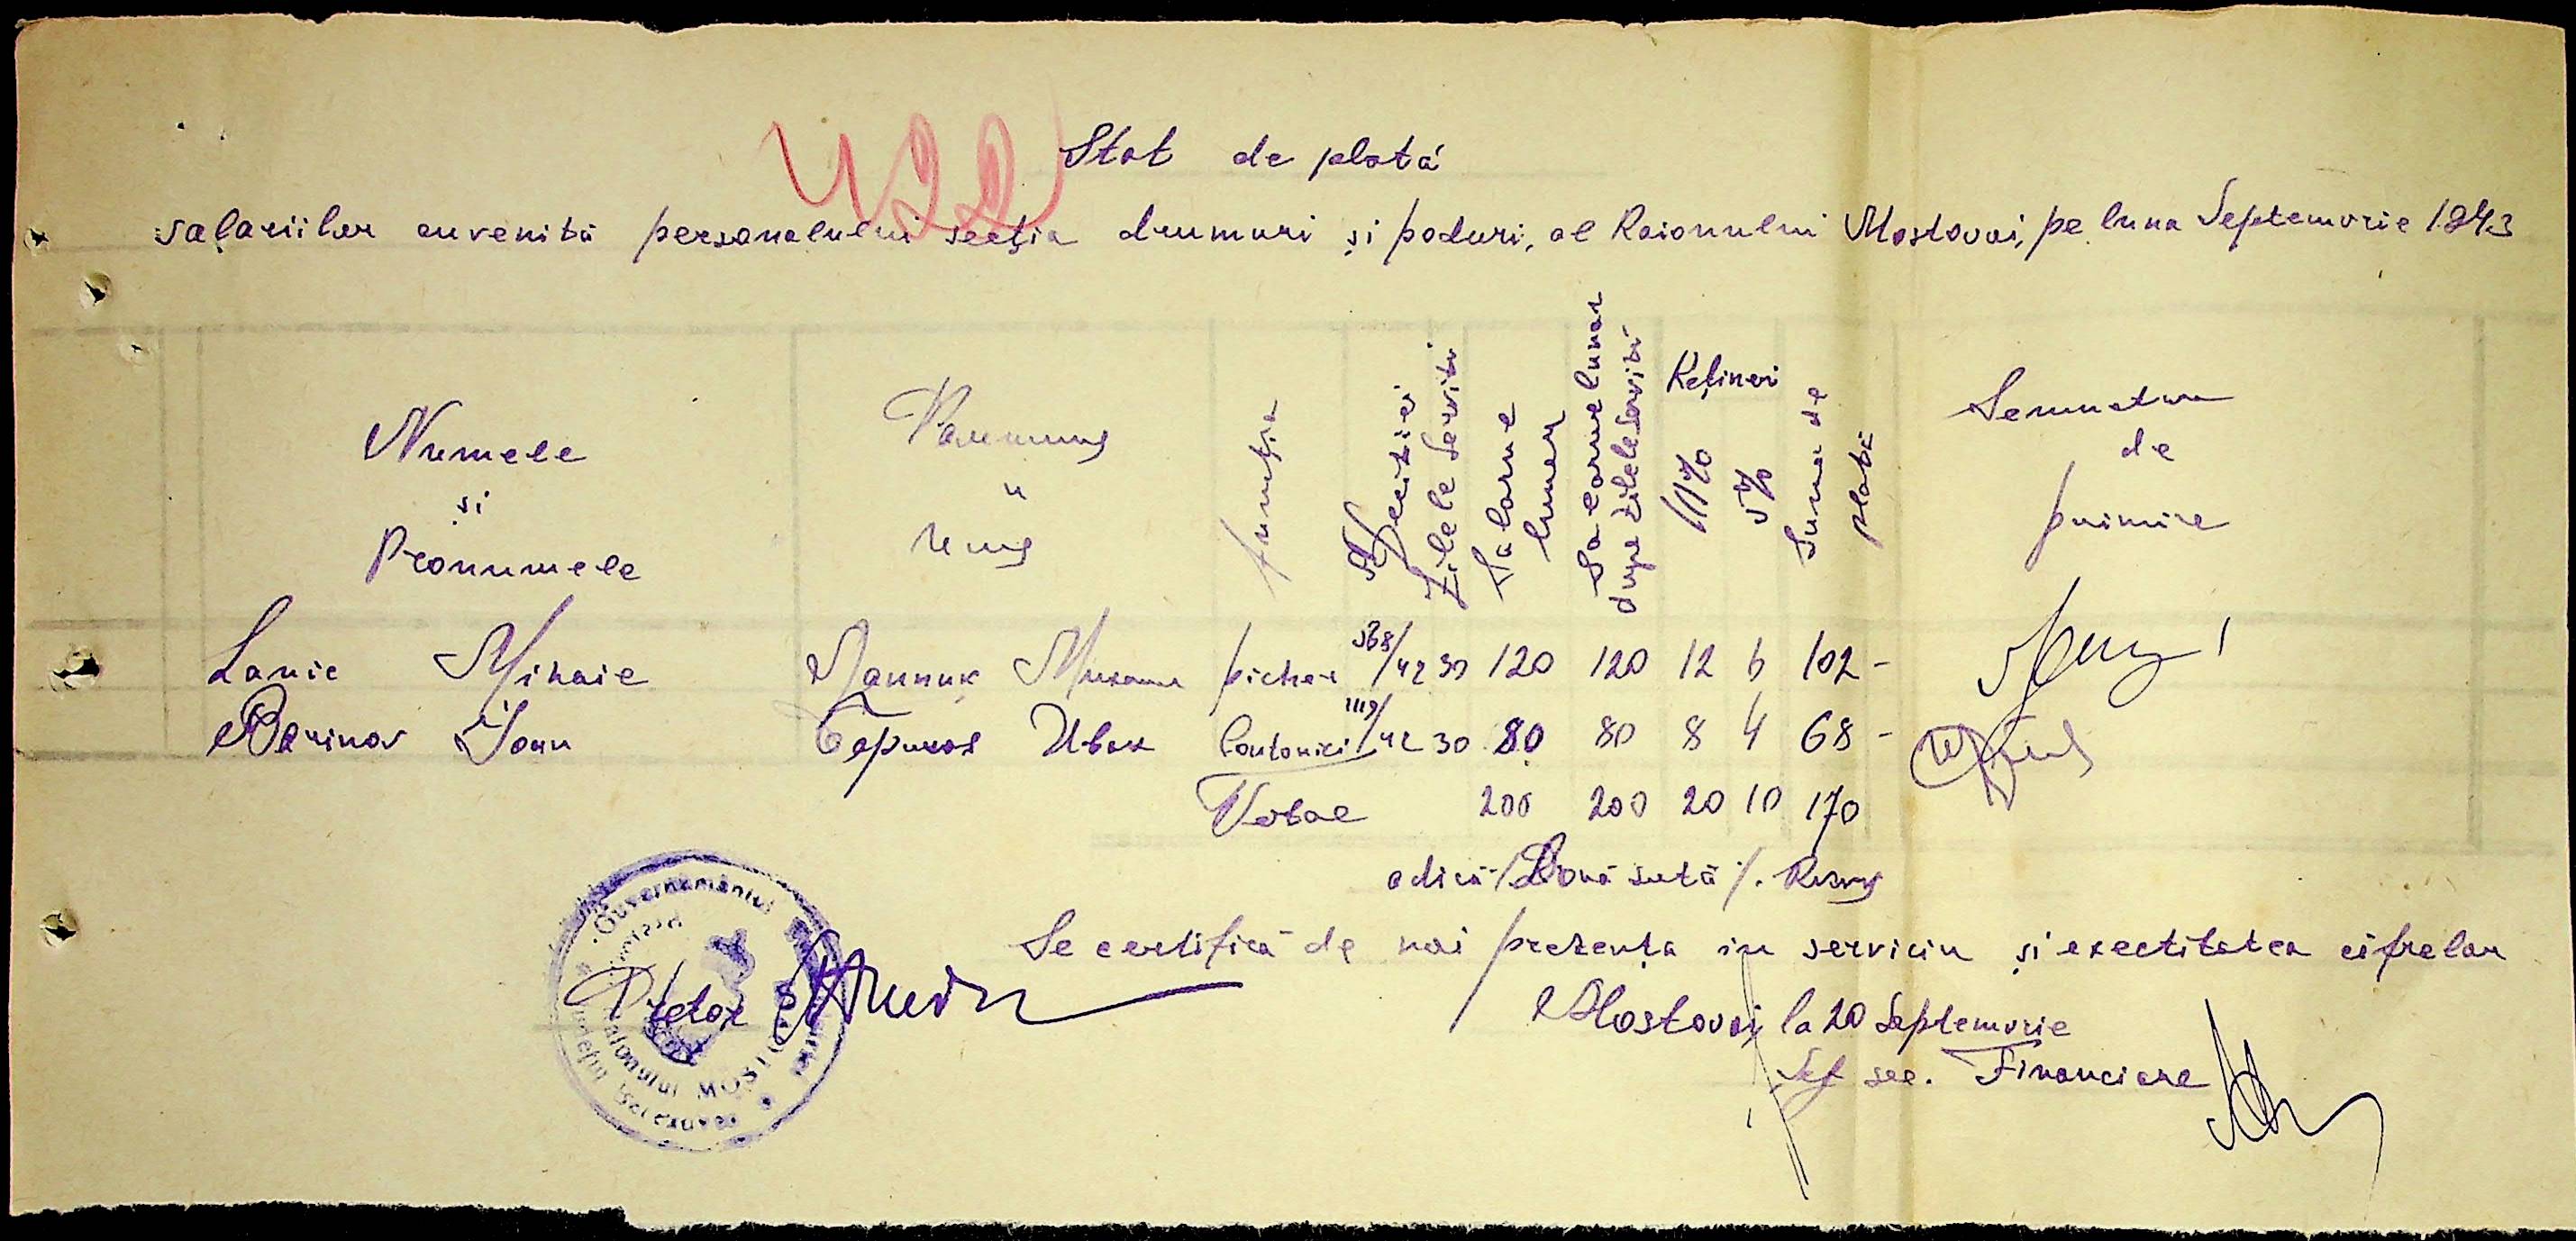 422
Stat de plată
salariilor cuvenită personalului secția drumuri și poduri, al Raionului Mostovoi, pe luna Septemvrie 1943
Numele și Pronumele
Фамилия и имя
funcția
Deciziei
Zilele servite
Salarue lunar
Salarue lunar dupe zilele servite
Rețineri
10%
5%
Suma de plată
Semnatura de primire
Lanic Mihaie Ланник Михаил picher 568/42 30 120 120 12 6 102 -
Berinov Ioan Беринов Иван Cantonier 1119/42 30 80 80 8 4 68 -
Total 200 200 20 10 170
adică /Două sută/.
Se certifică de noi prezența in serviciu și exectitatea cifrelor
Mostovoi la 20 Septemvrie
Șef sec. Financiare
Pretor
Guvernământul
Raionului MOSTOVOI